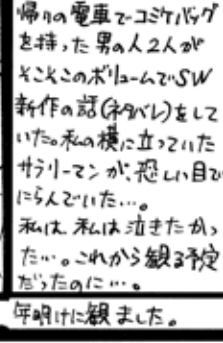 帰りの電車でコミケバッグ
を持った男の人2人が
そこそこのボリュームでSW
新作の話(ネタバレ)をして
いた。私の横に立っていた
サラリーマンが、恐しい目で
にらんでいた…。
私は、私は泣きたかっ
た…。これから観る予定
だったのに…。
年明けに観ました。